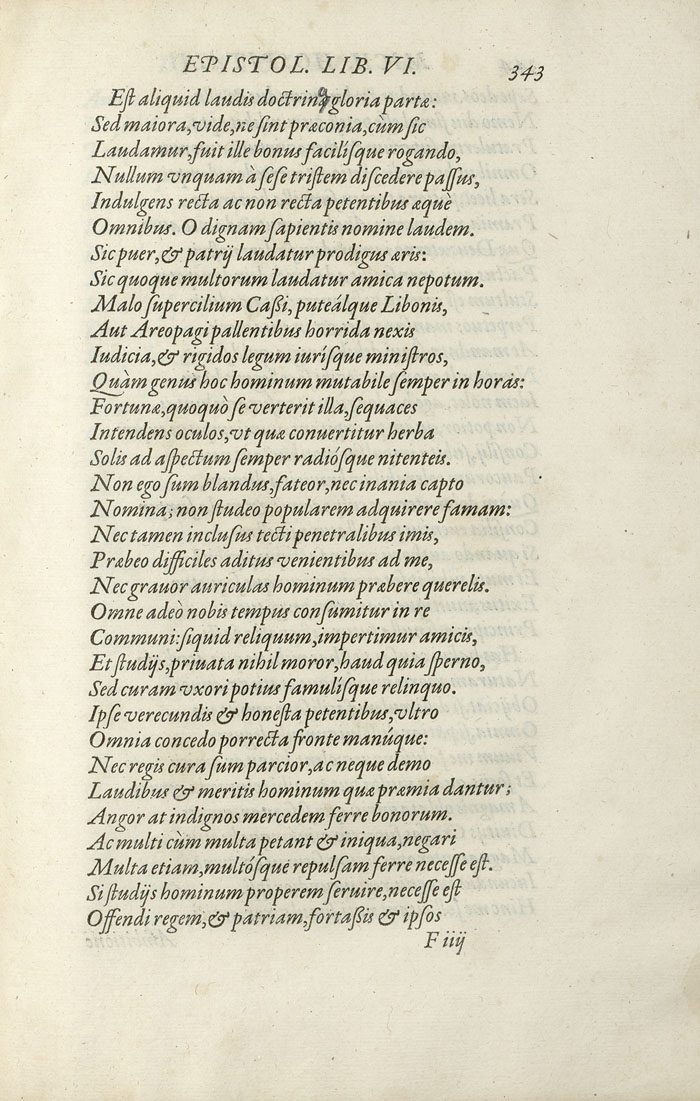 EPISTOL. LIB. VI. 343
Est aliquid laudis doctrinæ gloria partæ:
Sed maiora, vide, ne sint præconia, cùm sic
Laudamur, fuit ille bonus facilísque rogando,
Nullum vnquam à sese tristem discedere passus,
Indulgens recta ac non recta petentibus æquè
Omnibus. O dignam sapientis nomine laudem.
Sic puer, & patrij laudatur prodigus æris:
Sic quoque multorum laudatur amica nepotum.
Malo supercilium Caßi, puteálque Libonis,
Aut Areopagi pallentibus horrida nexis
Iudicia, & rigidos legum iurísque ministros,
Quàm genus hoc hominum mutabile semper in horas:
Fortunæ, quoquò se verterit illa, sequaces
Intendens oculos, vt quæ conuertitur herba
Solis ad aspectum semper radiósque nitenteis.
Non ego sum blandus, fateor, nec inania capto
Nomina; non studeo popularem adquirere famam:
Nec tamen inclusus tecti penetralibus imis,
Præbeo difficiles aditus venientibus ad me,
Nec grauor auriculas hominum præbere querelis.
Omne adeò nobis tempus consumitur in re
Communi: siquid reliquum, impertimur amicis,
Et studijs, priuata nihil moror, haud quia sperno,
Sed curam vxori potius famulísque relinquo.
Ipse verecundis & honesta petentibus, vltro
Omnia concedo porrecta fronte manúque:
Nec regis cura sum parcior, ac neque demo
Laudibus & meritis hominum quæ præmia dantur;
Angor at indignos mercedem ferre bonorum.
Ac multi cùm multa petant & iniqua, negari
Multa etiam, multósque repulsam ferre necesse est.
Si studijs hominum properem seruire, necesse est
Offendi regem, & patriam, fortaßis & ipsos
F iiij